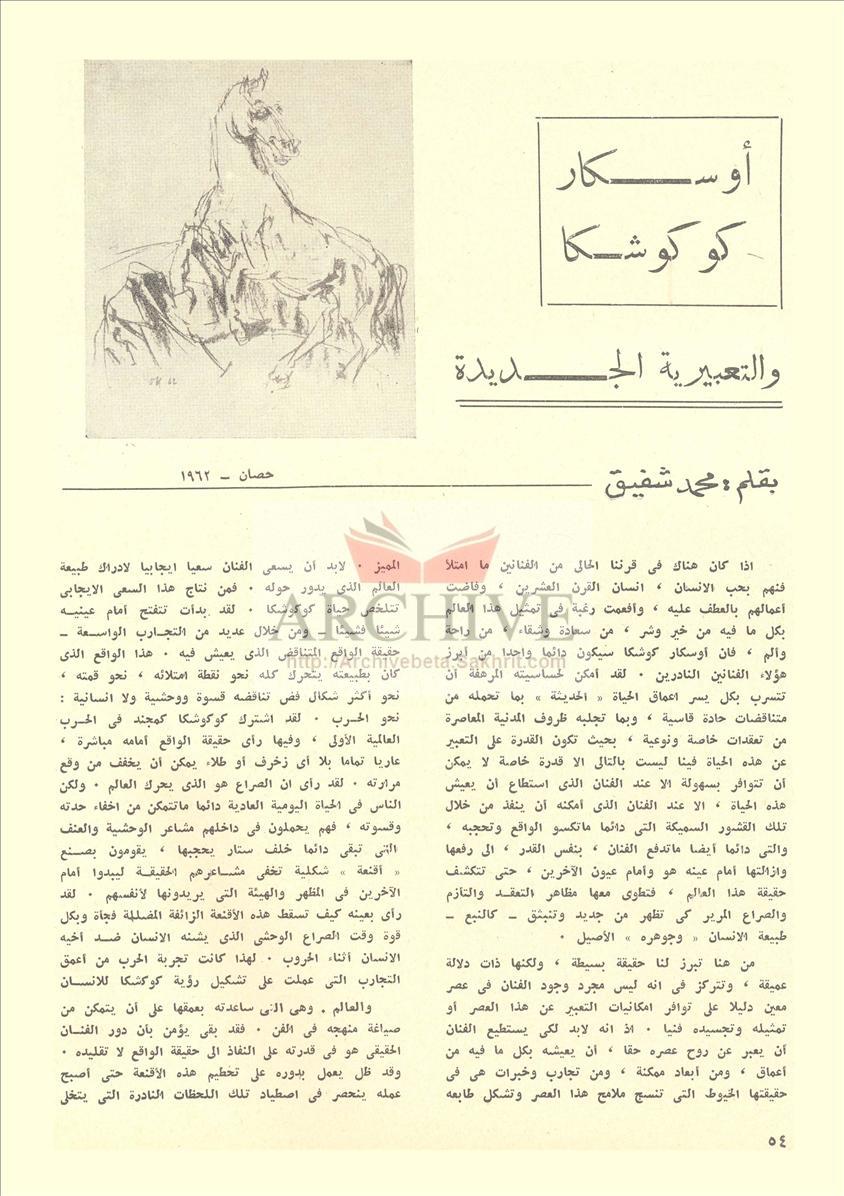 أوسكار
كوكوشكا
والتعبيرية الجديدة
OK 62
حصان – ١٩٦٢
بقلم : محمد شفيق
اذا كان هناك فى قرننا الحالى من الفنانين ما امتلأ
فنهم بحب الانسان ، انسان القرن العشرين ، وفاضت
أعمالهم بالعطف عليه ، وأفعمت رغبة فى تمثيل هذا العالم
بكل ما فيه من خير وشر ، من سعادة وشقاء ، من راحة
وألم ، فان أوسكار كوشكا سيكون دائما واحدا من أبرز
هؤلاء الفنانين النادرين ٠ لقد أمكن لحساسيته المرهفة أن
تتسرب بكل يسر اعماق الحياة « الحديثة » بما تحمله من
متناقضات حادة قاسية ، وبما تجلبه ظروف المدنية المعاصرة
من تعقدات خاصة ونوعية ، بحيث تكون القدرة على التعبير
عن هذه الحياة فينا ليست بالتالى الا قدرة خاصة لا يمكن
أن تتوافر بسهولة الا عند الفنان الذى استطاع أن يعيش
هذه الحياة ، الا عند الفنان الذى أمكنه أن ينفذ من خلال
تلك القشور السميكة التى دائما ماتكسو الواقع وتحجبه ،
والتى دائما أيضا ماتدفع الفنان ، بنفس القدر ، الى رفعها
وازالتها أمام عينه هو وأمام عيون الآخرين ، حتى تتكشف
حقيقة هذا العالم ، فتطوى معها مظاهر التعقد والتأزم
والصراع المرير كى تظهر من جديد وتنبثق – كالنبع –
طبيعة الانسان « وجوهره » الأصيل ٠
من هنا تبرز لنا حقيقة بسيطة ، ولكنها ذات دلالة
عميقة ، وتتركز فى انه ليس مجرد وجود الفنان فى عصر
معين دليلا على توافر امكانيات التعبير عن هذا العصر أو
تمثيله وتجسيده فنيا ٠ اذ انه لابد لكى يستطيع الفنان
أن يعبر عن روح عصره حقا ، أن يعيشه بكل ما فيه من
أعماق ، ومن أبعاد ممكنة ، ومن تجارب وخبرات هى فى
حقيقتها الخيوط التى تنسج ملامح هذا العصر وتشكل طابعه
المميز ٠ لابد أن يسعى الفنان سعيا ايجابيا لادراك طبيعة
العالم الذى يدور حوله ٠ فمن نتاج هذا السعى الايجابى
تتلخص حياة كوكوشكا ٠ لقد بدأت تتفتح أمام عينيه
شيئا فشيئا – ومن خلال عديد من التجارب الواسعة –
حقيقة الواقع المتناقض الذى يعيش فيه ٠ هذا الواقع الذى
كان بطبيعته يتحرك كله نحو نقطة امتلائه ، نحو قمته ،
نحو أكثر شكال فض تناقضه قسوة ووحشية ولا انسانية :
نحو الحرب ٠ لقد اشترك كوكوشكا كمجند فى الحرب
العالمية الأولى ، وفيها رأى حقيقة الواقع أمامه مباشرة ،
عاريا تماما بلا أى زخرف أو طلاء يمكن أن يخفف من وقع
مرارته ٠ لقد رأى ان الصراع هو الذى يحرك العالم ٠ ولكن
الناس فى الحياة اليومية العادية دائما ماتتمكن من اخفاء حدته
وقسوته ، فهم يحملون فى داخلهم مشاعر الوحشية والعنف
التى تبقى دائما خلف ستار يحجبها ، يقومون بصنع
« أقنعة » شكلية تخفى مشاعرهم الحقيقة ليبدوا أمام
الآخرين فى المظهر والهيئة التى يريدونها لأنفسهم ٠ لقد
رأى بعينه كيف تسقط هذه الأقنعة الزائفة المضللة فجأة وبكل
قوة وقت الصراع الوحشى الذى يشنه الانسان ضد أخيه
الانسان أثناء الحروب ٠ لهذا كانت تجربة الحرب من أعمق
التجارب التى عملت على تشكيل رؤية كوكشكا للانسان
والعالم ٠ وهى التى ساعدته بعمقها على أن يتمكن من
صياغة منهجه فى الفن ٠ فقد بقى يؤمن بأن دور الفنان
الحقيقى هو فى قدرته على النفاذ الى حقيقة الواقع لا تقليده ٠
وقد ظل يعمل بدوره على تحطيم هذه الأقنعة حتى أصبح
عمله ينحصر فى اصطياد تلك اللحظات النادرة التى يتخلى
ARCHIVE
http://Archivebeta.Sakhrit.com
٥٤